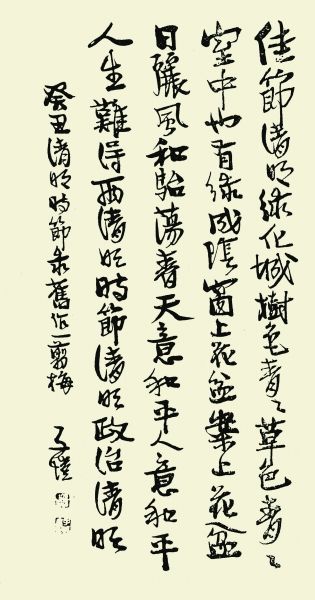 佳節清明綠化城樹色青〻草色青〻
室中也有綠成陰窗上花盆案上花盆
日麗風和駘蕩春天意和平人意和平
人生難得兩清明時節清明政治清明
癸丑清明時節彔舊作一剪梅 子愷